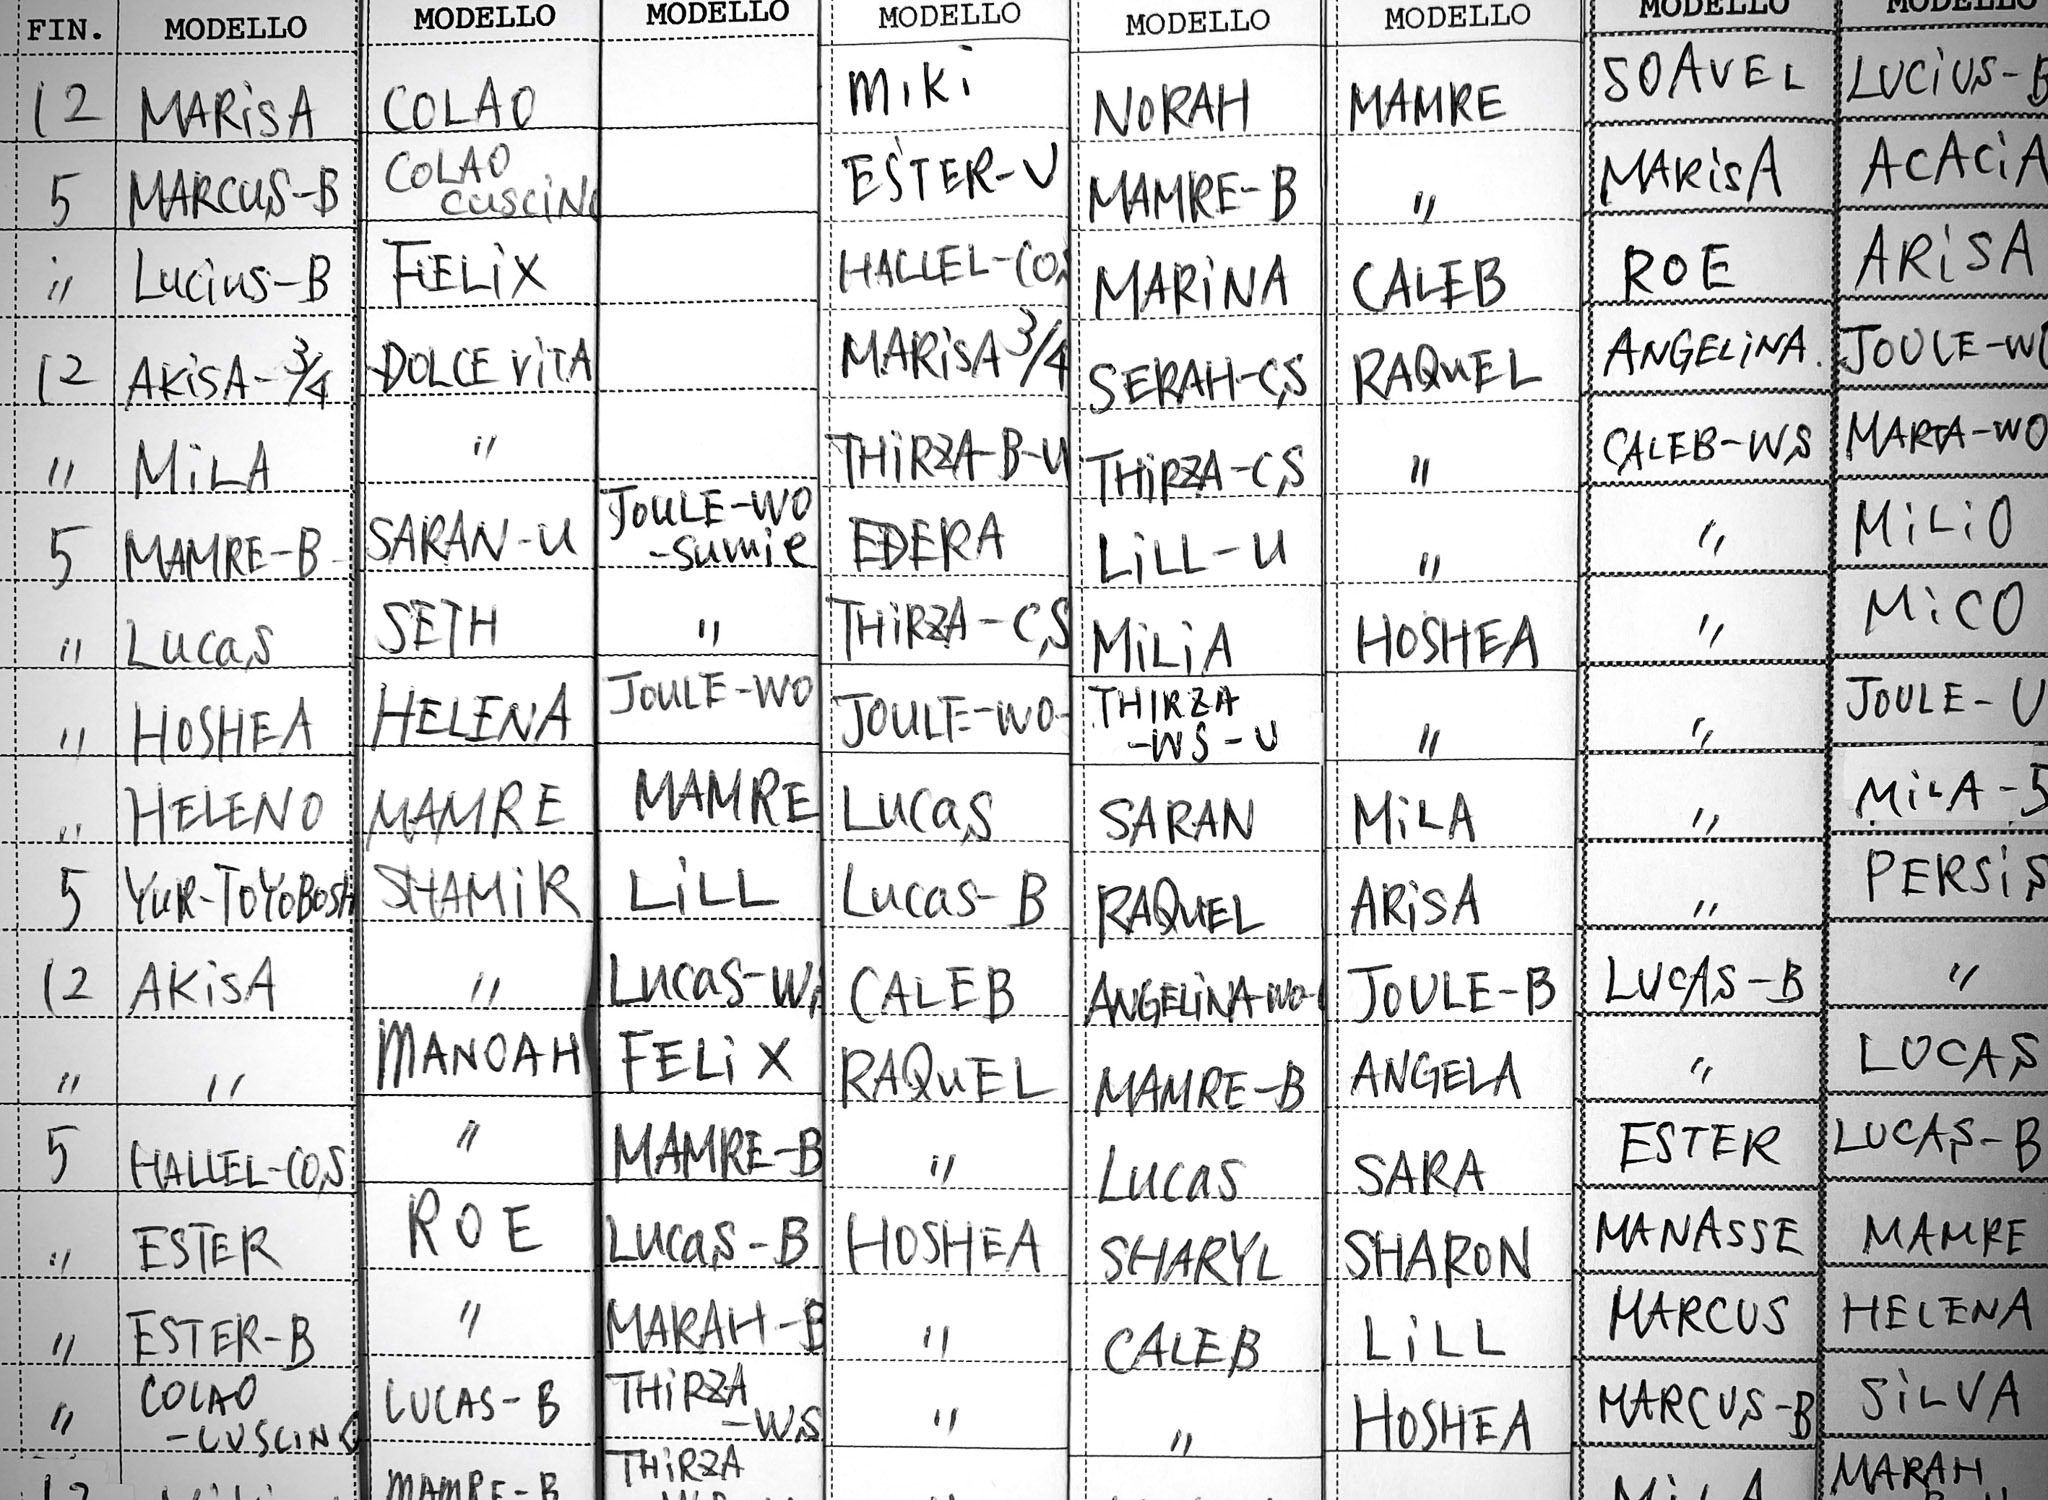 FIN.
MODELLO
12 MARISA
5 MARCUS-B
" LUCIUS-B
12 AKISA-3/4
" MILA
5 MAMRE-B
" LUCAS
" HOSHEA
" HELENO
5 YUR-TOYOBOSH
12 AKISA
" "
5 HALLEL-COS
" ESTER
" ESTER-B
" COLAO
-CUSCINO
12
MODELLO
COLAO
COLAO
CUSCINO
FELIX
DOLCE VITA
"
SARAN-U
SETH
HELENA
MAMRE
SHAMIR
"
MANOAH
"
ROE
"
LUCAS-B
MAMRE-B
MODELLO
JOULE-WO
-sumie
"
JOULE-WO
MAMRE
LILL
LUCAS-W
FELIX
MAMRE-B
LUCAS-B
MARAH-B
THIRZA
-WS
THIRZA
MODELLO
MIKI
ESTER-U
HALLEL-COS
MARISA 3/4
THIRZA-B-U
EDERA
THIRZA-CS
JOULE-WO-
LUCAS
LUCAS-B
CALEB
RAQUEL
"
HOSHEA
"
"
"
MODELLO
NORAH
MAMRE-B
MARINA
SERAH-CS
THIRZA-CS
LILL-U
MILIA
THIRZA
-WS-U
SARAN
RAQUEL
ANGELINA-WO-
MAMRE-B
LUCAS
SHARYL
CALEB
"
MODELLO
MAMRE
"
CALEB
RAQUEL
"
"
HOSHEA
"
MILA
ARISA
JOULE-B
ANGELA
SARA
SHARON
LILL
HOSHEA
MODELLO
SOAVEL
MARISA
ROE
ANGELINA
CALEB-WS
"
"
"
"
"
LUCAS-B
"
ESTER
MANASSE
MARCUS
MARCUS-B
MILA
MODELLO
LUCIUS-B
ACACIA
ARISA
JOULE-WO
MARTA-WO
MILIO
MICO
JOULE-U
MILA-5
PERSIS
"
LUCAS
LUCAS-B
MAMRE
HELENA
SILVA
MARAH